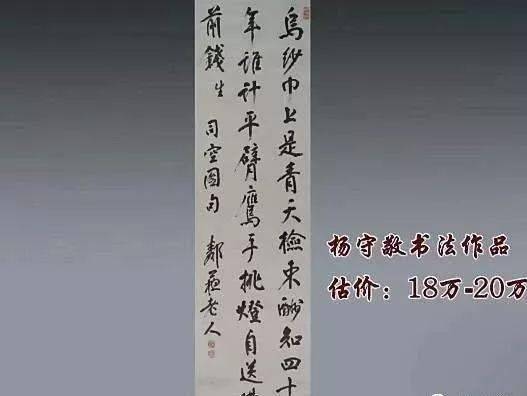 烏紗巾上是青天檢束酬知四十
年誰計平臂鷹手挑燈自送
前錢生 司空圖句 鄰蘇老人
杨守敬书法作品
估价：18万-20万